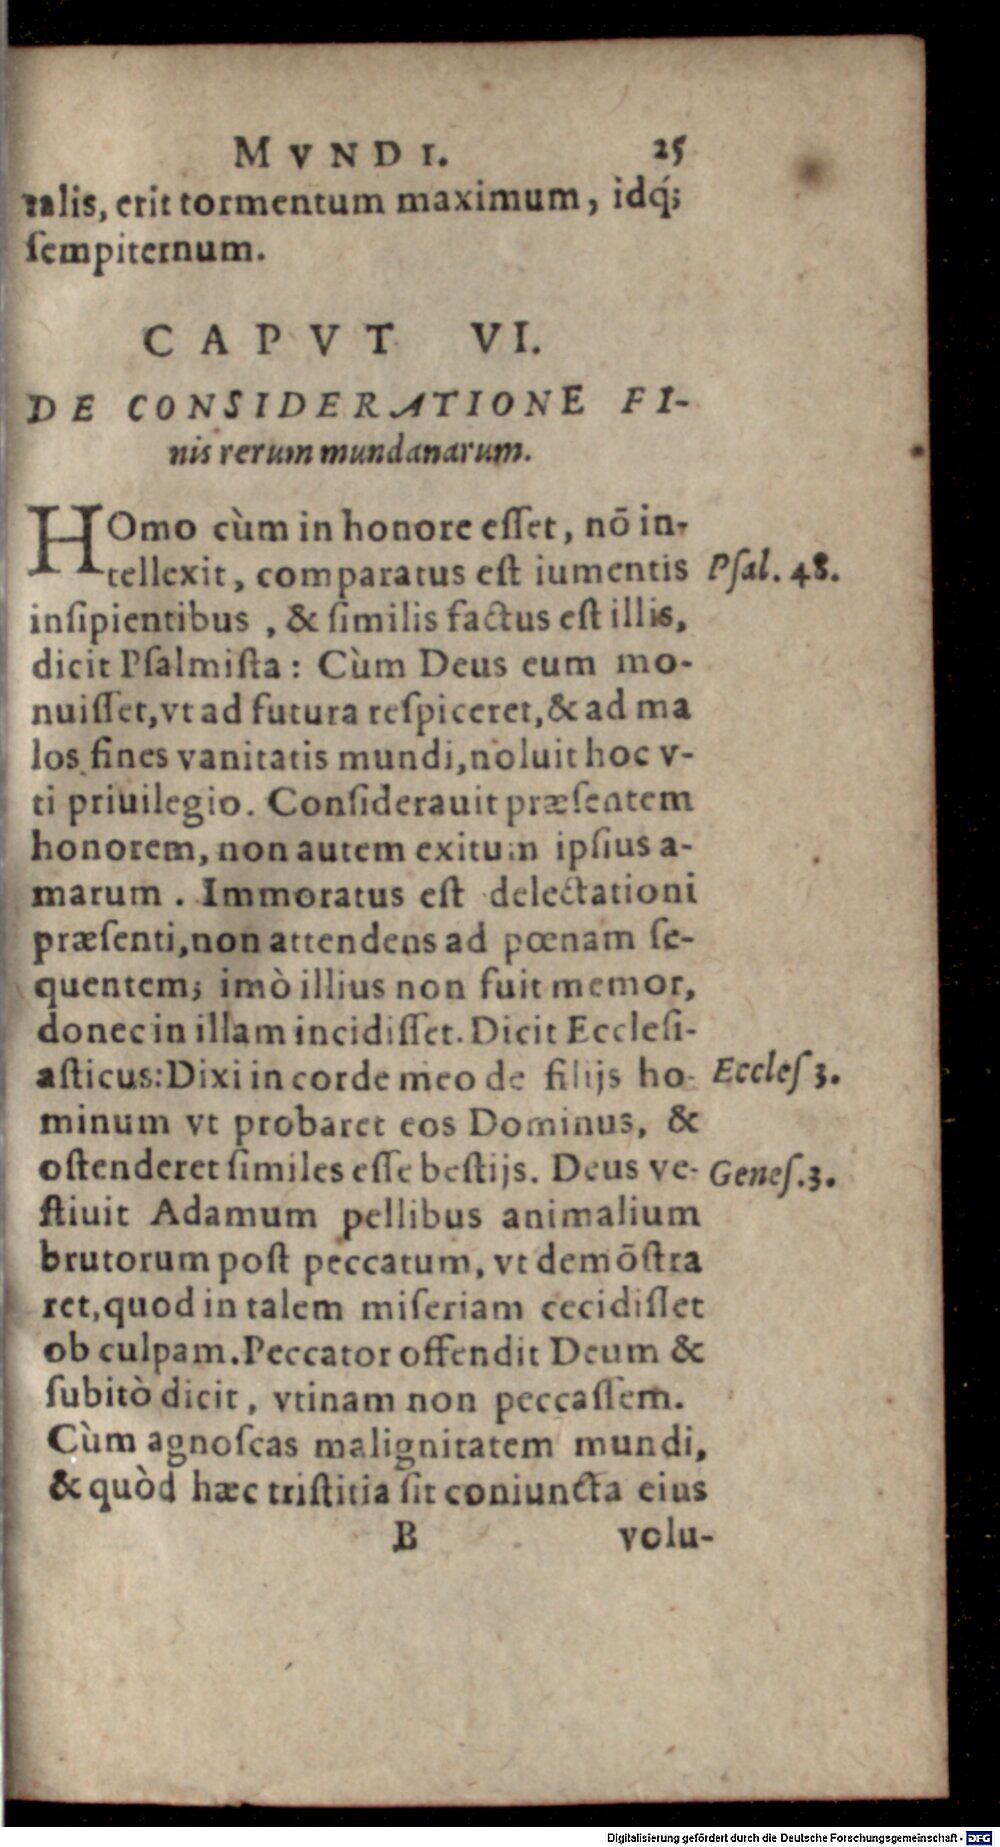 MVNDI. 25
talis, erit tormentum maximum, idq́;
ſempiternum.
CAPVT VI.
DE CONSIDERATIONE FI-
nis rerum mundanarum.
HOmo cùm in honore eſſet, nō in-
tellexit, comparatus eſt iumentis Pſal. 48.
inſipientibus, & ſimilis factus eſt illis,
dicit Pſalmiſta: Cùm Deus eum mo-
nuiſſet, vt ad futura reſpiceret, & ad ma
los fines vanitatis mundi, noluit hoc v-
ti priuilegio. Conſiderauit præſentem
honorem, non autem exitum ipſius a-
marum. Immoratus eſt delectationi
præſenti, non attendens ad pœnam ſe-
quentem; imò illius non fuit memor,
donec in illam incidiſſet. Dicit Eccleſi-
aſticus: Dixi in corde meo de filijs ho- Eccleſ 3.
minum vt probaret eos Dominus, &
oſtenderet ſimiles eſſe beſtijs. Deus ve- Geneſ. 3.
ſtiuit Adamum pellibus animalium
brutorum poſt peccatum, vt demōſtra
ret, quod in talem miſeriam cecidiſſet
ob culpam. Peccator offendit Deum &
ſubitò dicit, vtinam non peccaſſem.
Cùm agnoſcas malignitatem mundi,
& quòd hæc triſtitia ſit coniuncta eius
B volu-
Digitalisierung gefördert durch die Deutsche Forschungsgemeinschaft - DFG